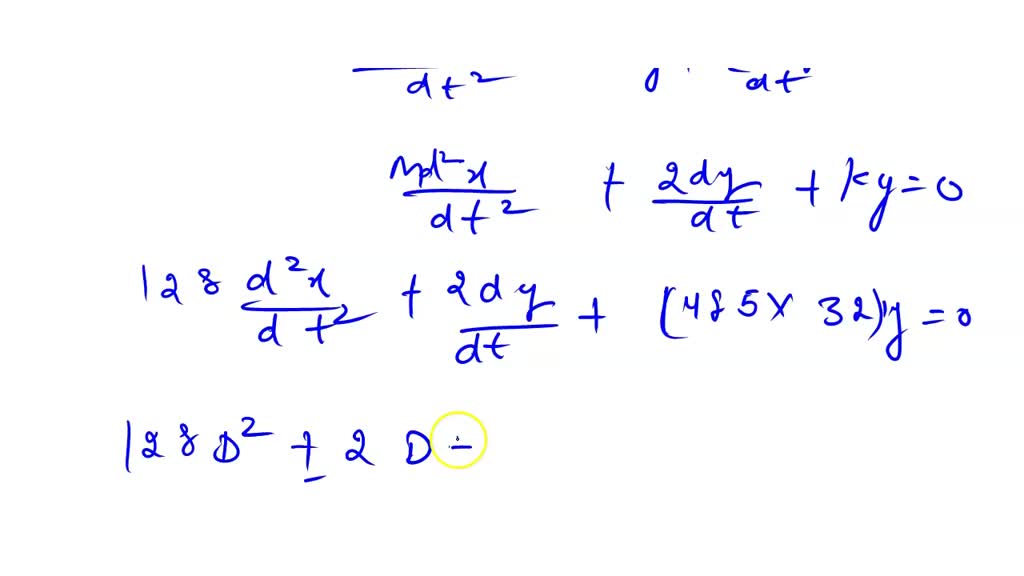 dt² 0 dt
md²x/dt² + 2dy/dt + ky = 0
128 d²x/dt² + 2dy/dt + (485 × 32)y = 0
128 D² + 2 D -